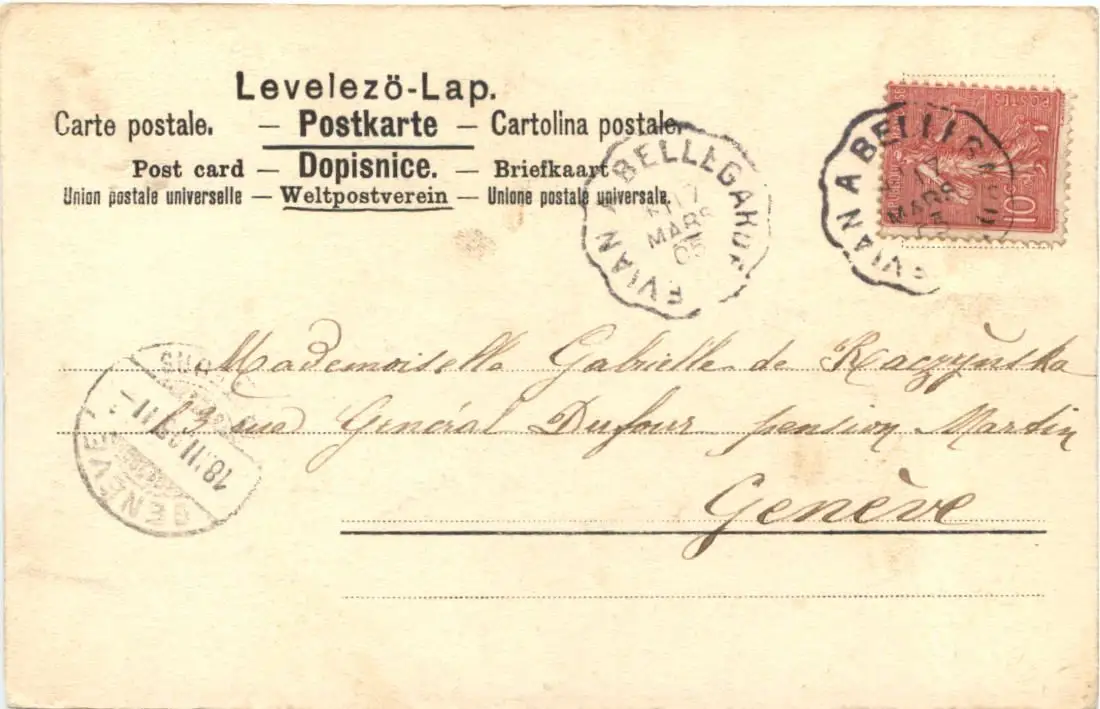 Levelező-Lap.
Carte postale. — Postkarte — Cartolina postale.
Post card — Dopisnice. — Briefkaart
Union postale universelle — Weltpostverein — Unione postale universale.
EVIAN A BELLEGARDE
17
MARS
05
POSTES
10c
EVIAN A BELLEGARDE
17
MARS
05
Mademoiselle Gabrielle de Raczÿnska
13 rue Général Dufour pension Martin
Genève
GENÈVE
18.III.05